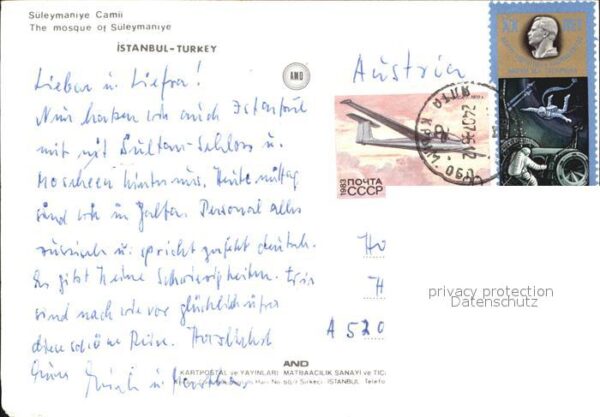 Süleymaniye Camii
The mosque of Süleymaniye
İSTANBUL-TURKEY
AND
Lieber u. Liefra!
Nun haben wir auch Istanbul
mit mit Sultan-Schloss u.
Moscheen hinter uns. Heute mittag
sind wir in Jalta. Personal alles
russisch u. spricht perfekt deutsch.
Es gibt keine Schwierigkeiten. Wir
sind nach wie vor glücklich über
diese schöne Reise. Herzlichst
Austria
1983 ПОЧТА
СССР
ЯЛТА
Ho
H
A 520
privacy protection
Datenschutz
AND
KARTPOSTAL ve YAYINLARI MATBAACILIK SANAYI ve TİC
Han No 50/7 Sirkeci - İSTANBUL Telefo